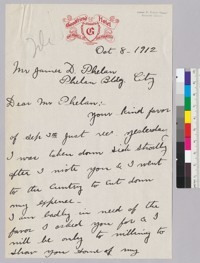 Oct 8 - 1912
Mr James D. Phelan
Phelan Bldg City
Dear Mr Phelan:
Your kind favor
of Sep 30th just rec yesterday
I was taken down sick shortly
after I wrote you & I went
to the Country to cut down
my expense.
I am badly in need of the
favor I asked you for & I
will be only to willing to
show you some of my